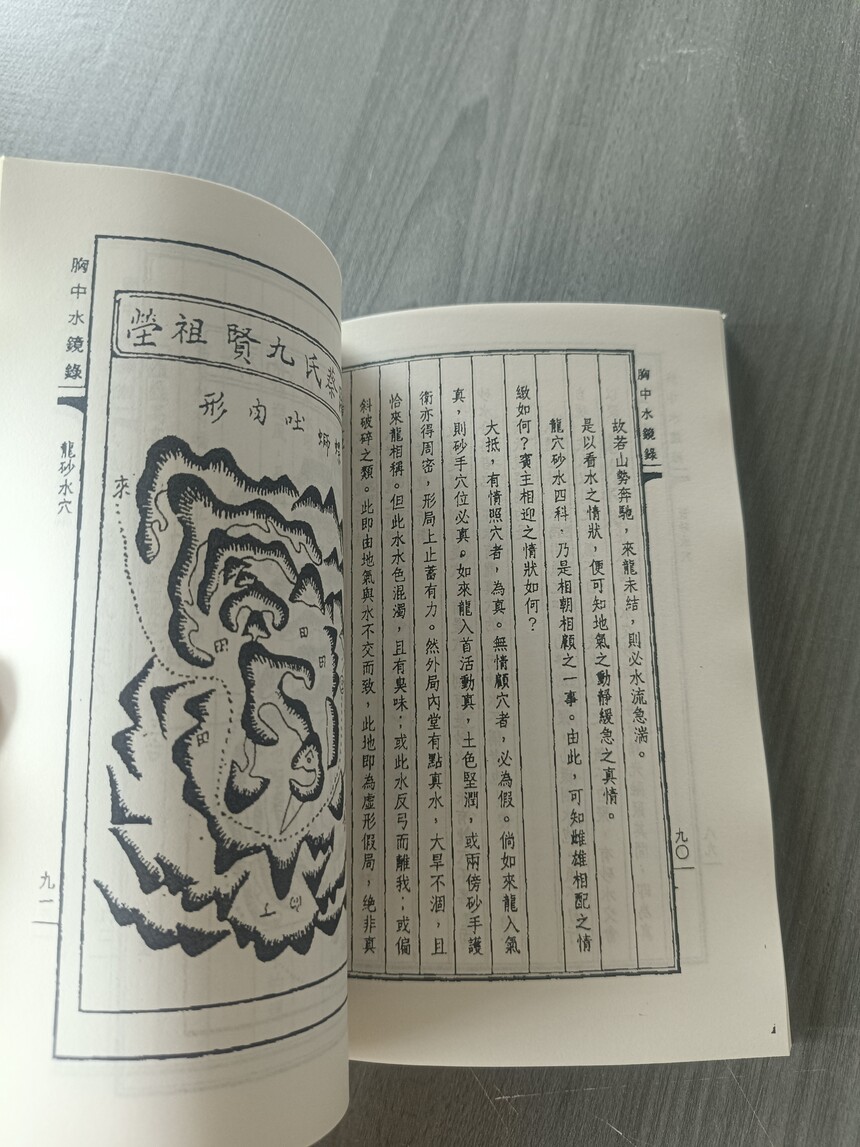 胸中水鏡錄
故若山勢奔馳，來龍未結，則必水流急湍。
是以看水之情狀，便可知地氣之動靜緩急之真情。
龍穴砂水四科，乃是相朝相顧之一事。由此，可知雌雄相配之情
緻如何？賓主相迎之情狀如何？
大抵，有情照穴者，為真。無情顧穴者，必為假。倘如來龍入氣
真，則砂手穴位必真。如來龍入首活動真，土色堅潤，或兩傍砂手護
衛亦得周密，形局上止蓄有力。然外局內堂有點真水，大旱不涸，且
恰來龍相稱。但此水水色混濁，且有臭味；或此水反弓而離我；或偏
斜破碎之類。此即由地氣與水不交而致，此地即為虛形假局，绝非真
九〇
蔡氏九賢祖塋
吐肉形
來
田
田
田
胸中水鏡錄
龍砂水穴
九一